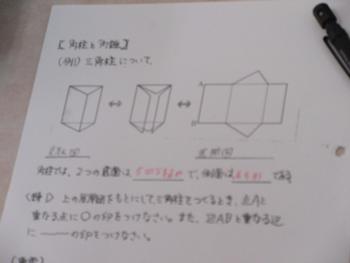 【角柱と角錐】
(例1) 三角柱について、
A
B
見取図 展開図
角柱では、2つの底面は で、側面は である
上の展開図をもとにして三角柱をつくるとき、点Aと
重なる点に○の印をつけなさい。また、辺ABと重なる辺
に の印をつけなさい。